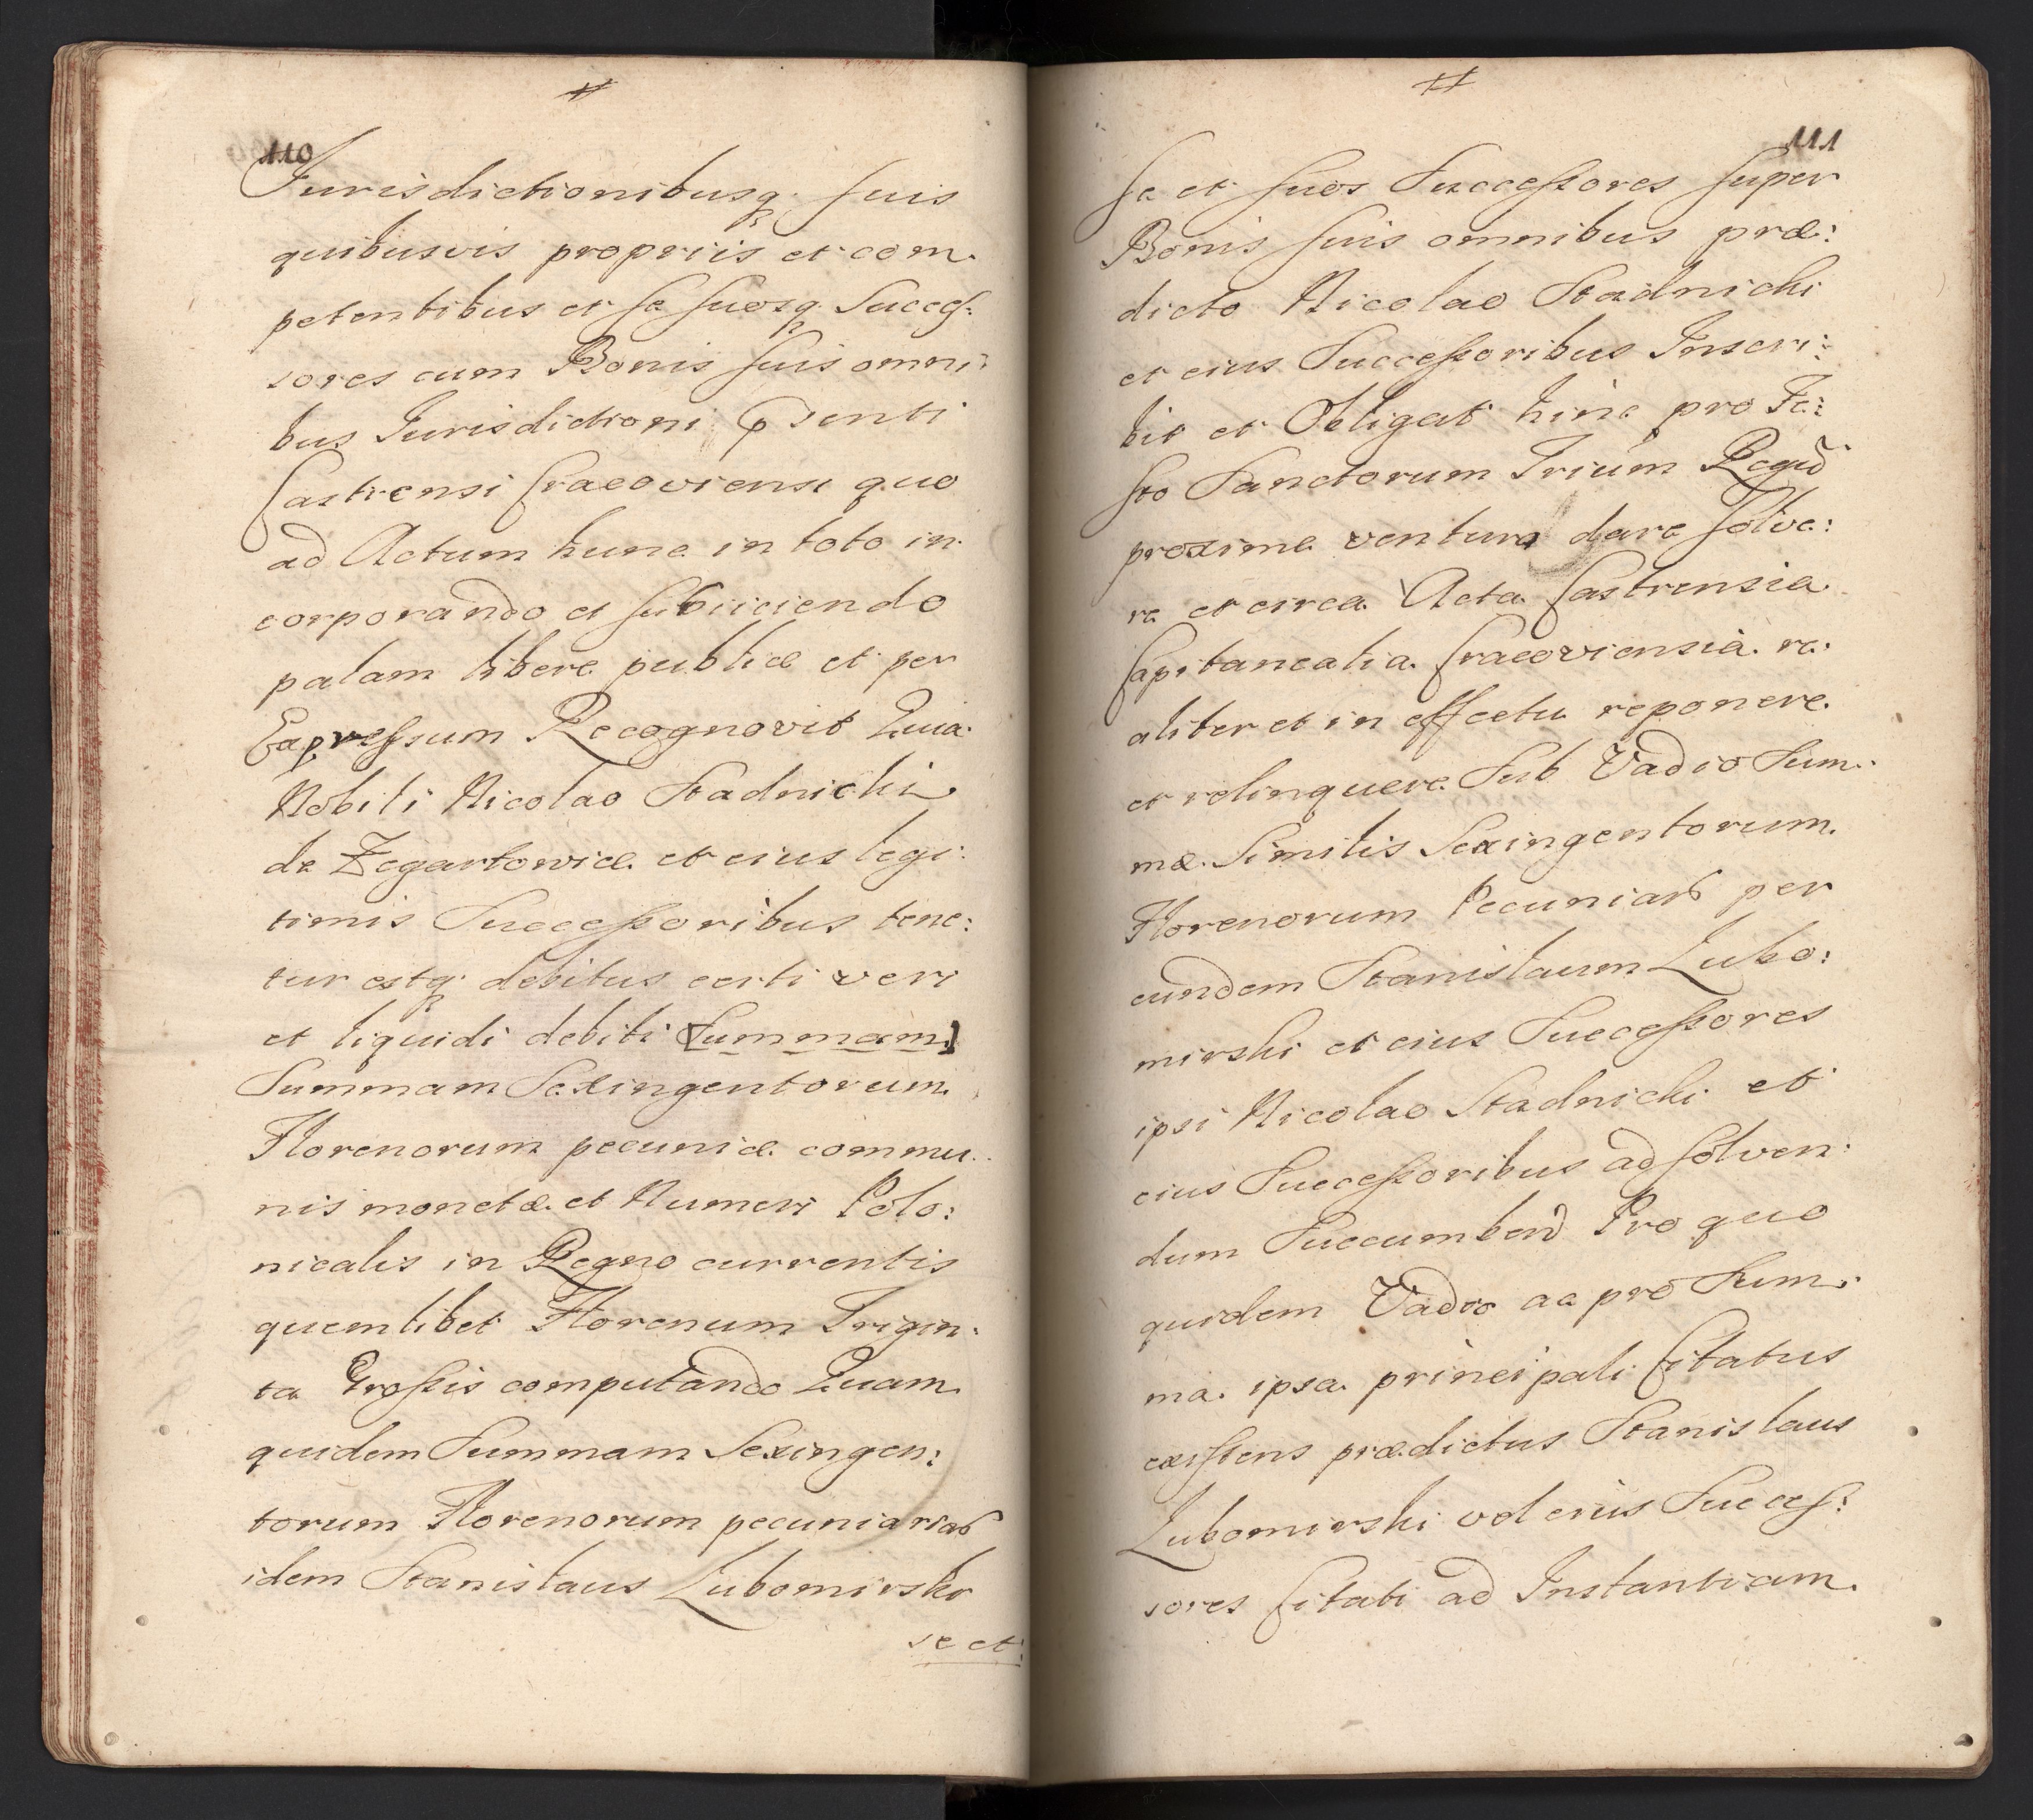 110
Jurisdictionibusq. suis
quibusvis propriis et com.
petentibus et se suosq. Succes:
sores cum Bonis suis omni:
bus Jurisdictioni senti
Castrensi Cracoviensi quo
ad Actum hunc in toto in
corporando et subiiciendo
palam libere publice et per
Expressum Recognovit Quia.
Nobili Nicolao Stadnicki
de Zegartowice et eius legi:
timis Successoribus tene:
tur estq. debitus certi veri
et liquidi debiti [Summam]
Summam Sexingentorum.
Florenorum pecuniæ commu.
nis monetæ et Numeri Polo:
nicalis in Regno currentis
quemlibet Florenum Trigin:
ta Grossis computando Quam.
quidem Summam Sexingen:
torum Florenorum pecuniariab
idem Stanislaus Lubomirski
se et:
111
se et suos Successores super
Bonis suis omnibus præ:
dicto Nicolao Stadnicki
et eius Successoribus Inscri:
bit et Obligat hinc pro Fe:
sto Sanctorum Trium Regū
proxime venturo dare solve:
re et circa Acta Castrensia
Capitanealia Cracoviensia re:
aliter et in effectu reponere.
et relinquere. Sub Vadio Sum:
mæ. Similis Sexingentorum.
Florenorum Pecuniarb per
eundem Stanislaum Lubo:
mirski et eius Successores
ipsi Nicolao Stadnicki et
eius Successoribus ad solven:
dum Succumbend Pro quo
quidem Vadio ac pro Sum:
ma. ipsa. principali Citatus
existens prædictus Stanislaus
Lubomirski vel eius Succes:
sores Citati ad Instantiam.